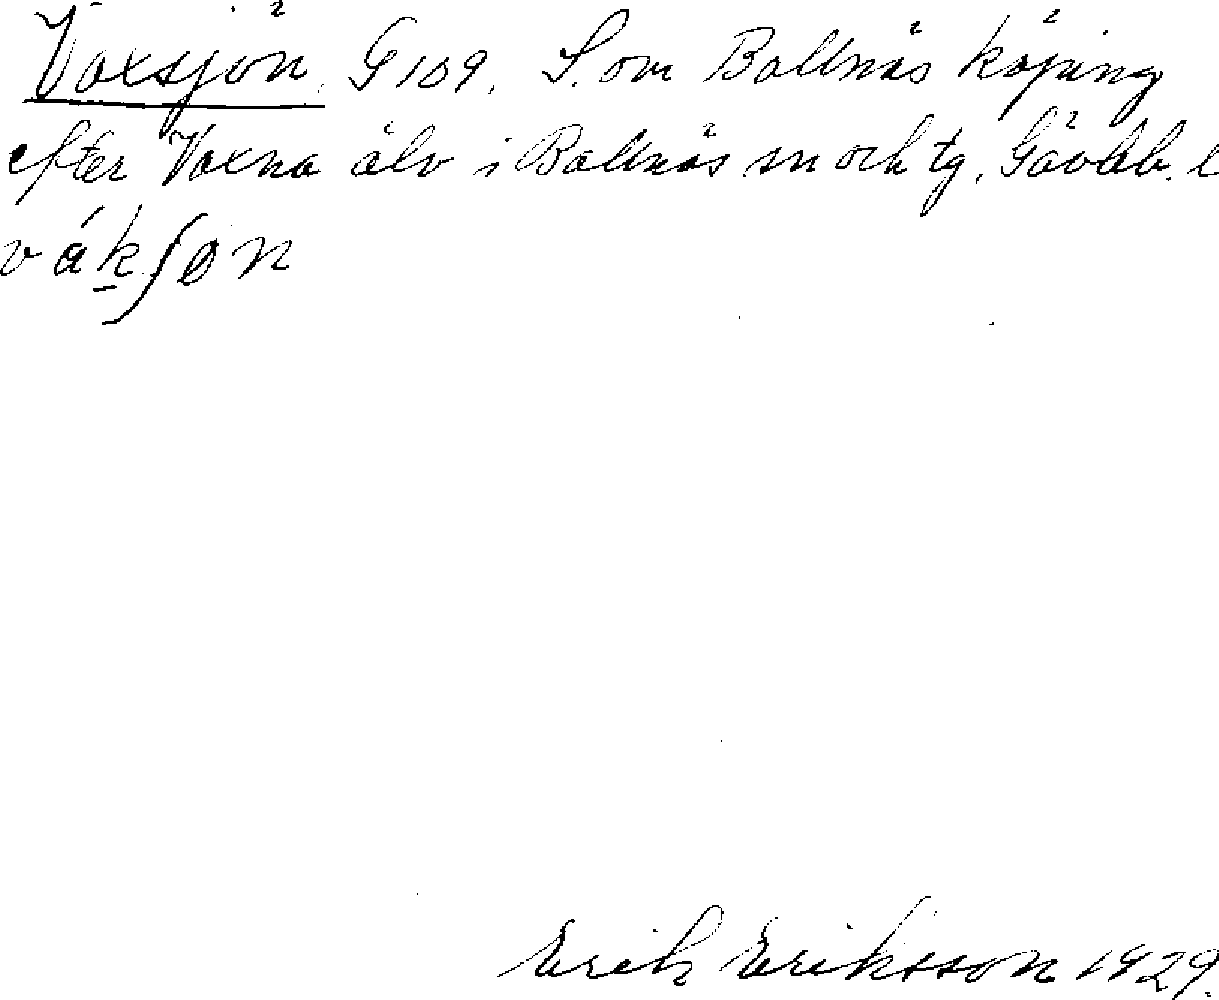 Voxsjön. G 109. S. om Bollnäs köping
efter Voxna älv i Bollnäs sn och tg. Gävleb. l
váksjøn
Erik Eriksson 1929.